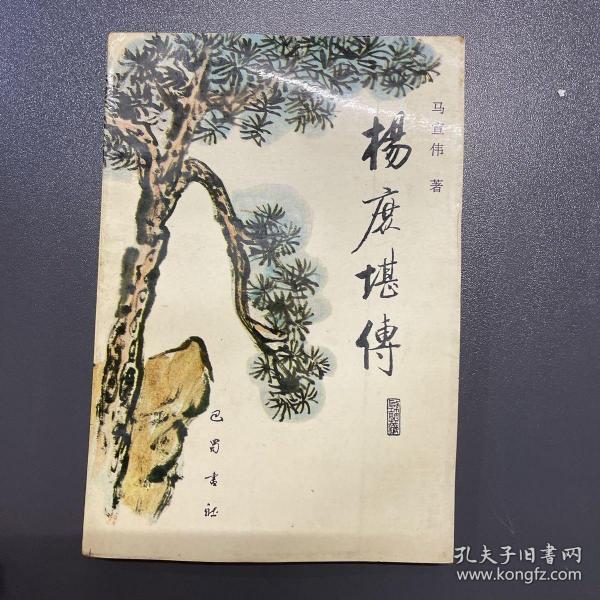 马宣伟 著
杨庶堪傳
巴蜀書社
孔夫子旧書网
www.kongfz.com